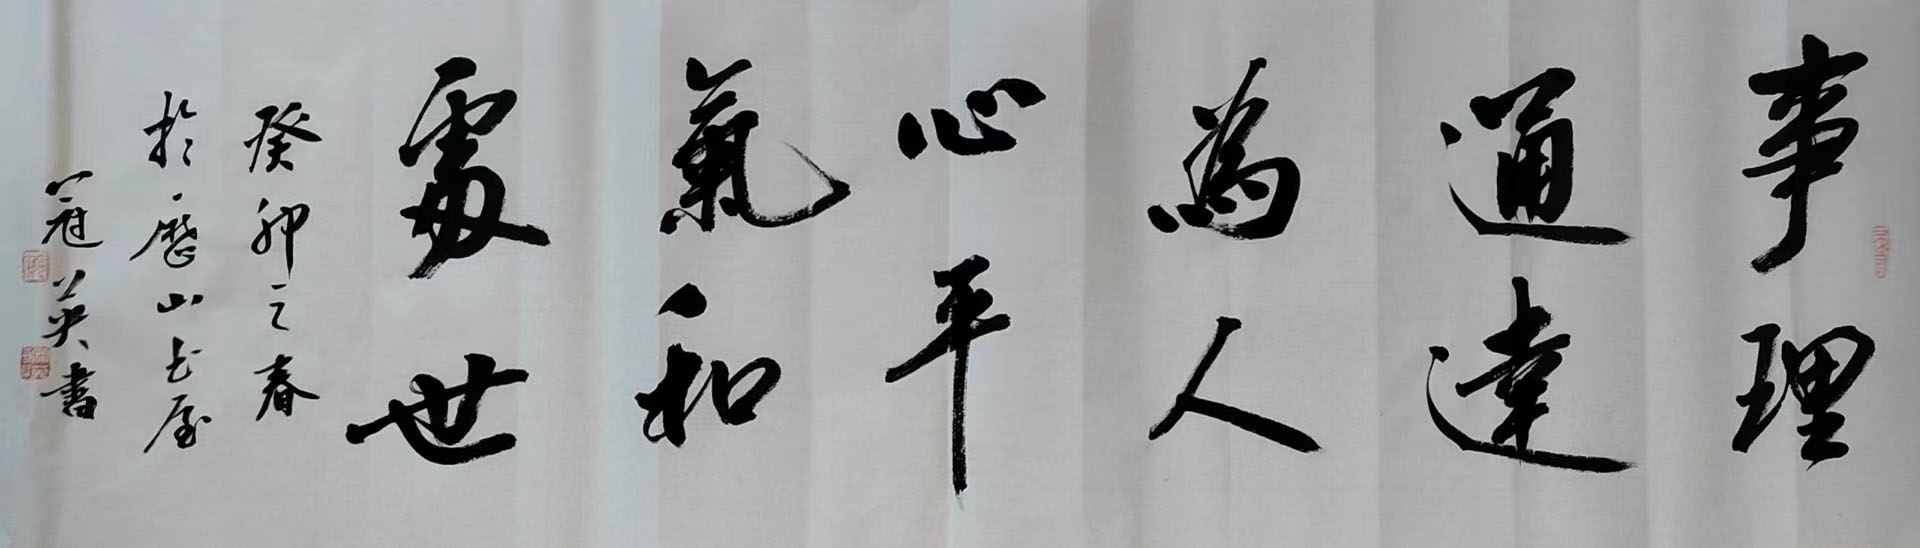 事理
通達
為人
心平
氣和
處世
癸卯之春
於歷山玉屋
冠英書